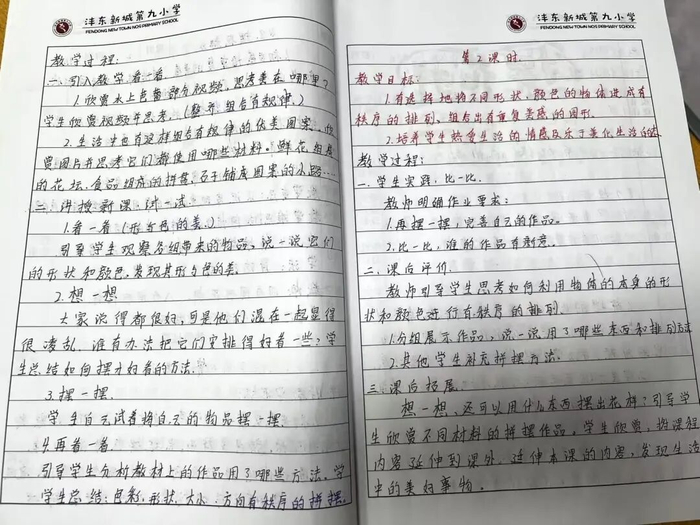 沣东新城第九小学
FENDONG NEW TOWN NO9 PRIMARY SCHOOL
教学过程:
一、引入教学看一看
1.欣赏水上芭蕾部分视频,思考美在哪里?
学生欣赏视频并思考。(整齐、组合有规律。)
2.生活中也有这样组合有规律的优美图案,欣
赏图片并思考它们都使用哪些材料。鲜花组成
的花坛、食品组成的拼盘、石子铺成图案的小路……
二、讲授新课,试一试
1.看一看(形与色的美。)
引导学生观察各组带来的物品,说一说它们
的形状和颜色,发现其形与色的美。
2.想一想
大家说得都很好,可是他们混在一起显得
很凌乱,谁有办法把它们安排得好看一些?学
生总结如何摆才好看的方法。
3.摆一摆。
学生自己试着将自己的物品摆一摆。
4.再看一看。
引导学生分析教材上的作品用了哪些方法。学
学生总结:色彩、形状、大小、方向有秩序的拼摆。
沣东新城第九小学
FENDONG NEW TOWN NO9 PRIMARY SCHOOL
第2课时
教学目标:
1.有选择地将不同形状、颜色的物体进行有
秩序的排列、组合出有重复美感的图形。
2.培养学生热爱生活的情感及乐于美化生活的
教学过程:
一、学生实践,比一比。
教师明确作业要求:
1.再摆一摆,完善自己的作品。
2.比一比,谁的作品有新意。
二、课后评价.
教师引导学生思考如何利用物体的本身的形
状和颜色进行有秩序的排列.
1.分组展示作品,说一说用了哪些东西和排列方法
2.其他学生补充拼摆方法.
三、课后拓展
想一想,还可以用什么东西摆出花样?引导学
生欣赏不同材料的拼摆作品。学生欣赏,将课程
内容延伸到课外,延伸本课的内容,发现生活
中的美好事物。